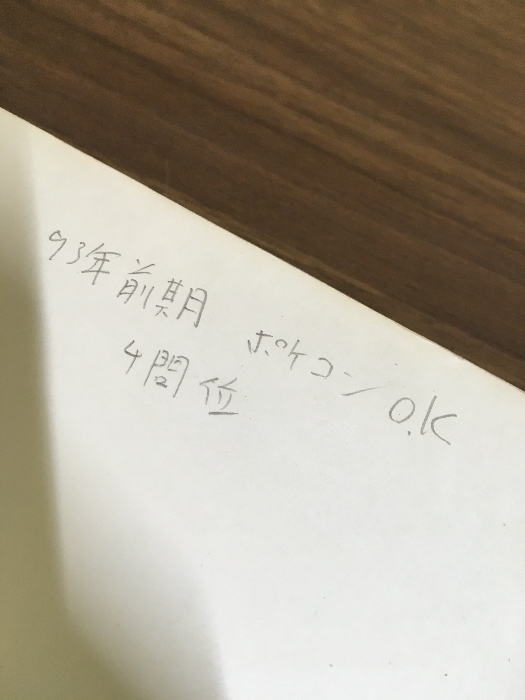 93年前期 ポケコン O.K
4問位